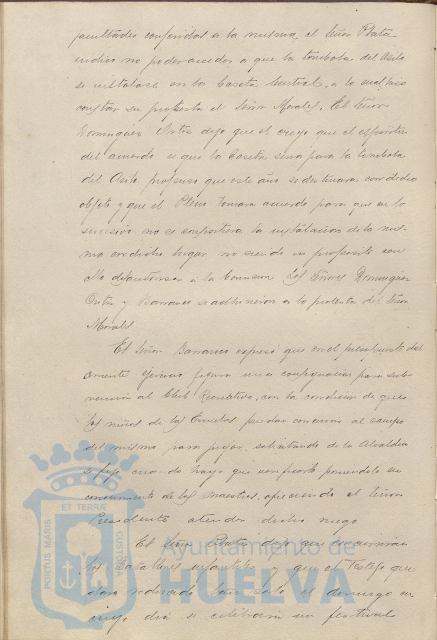 facultades conferidas a la misma, el Señor Plata
indico no poder acceder a que la tombola del Asilo
se instalase en la Caseta Central, a lo cual hizo
constar su protesta el Señor Morales. El Señor
Dominguez Ortiz dijo que el creyo que el espiritu
del acuerdo es que la Caseta sea para la tombola
del Asilo, propuso que este año se destinara con dicho
objeto y que el Pleno tomara acuerdo para que en lo
sucesivo no se la instalacion de la mis-
ma en dicho lugar no siendo su proposito con
ello desautorizar a la Comision. Los Señores Dominguez
Ortiz y Barranco se adhirieron a la protesta del Señor
Morales.
El Señor Barranco expresó que en el presupuesto del
corriente ejercicio figura una consignacion para sub-
vencion al Club Recreativo, con la condicion de que
los niños de las Escuelas puedan concurrir al campo
del mismo para jugar, solicitando de la Alcaldia
se fije cuando haya que verificarlo poniendolo en
conocimiento de los Maestros, ofreciendo el Señor
Presidente atender dicho ruego.
El Señor Plata dijo que
los Batallones infantiles y que el festejo que
para solo el domingo en
cuyo dia se celebrara un festival
PORTUS MARIS ET TERRAE CUSTODIA
Ayuntamiento de
HUELVA